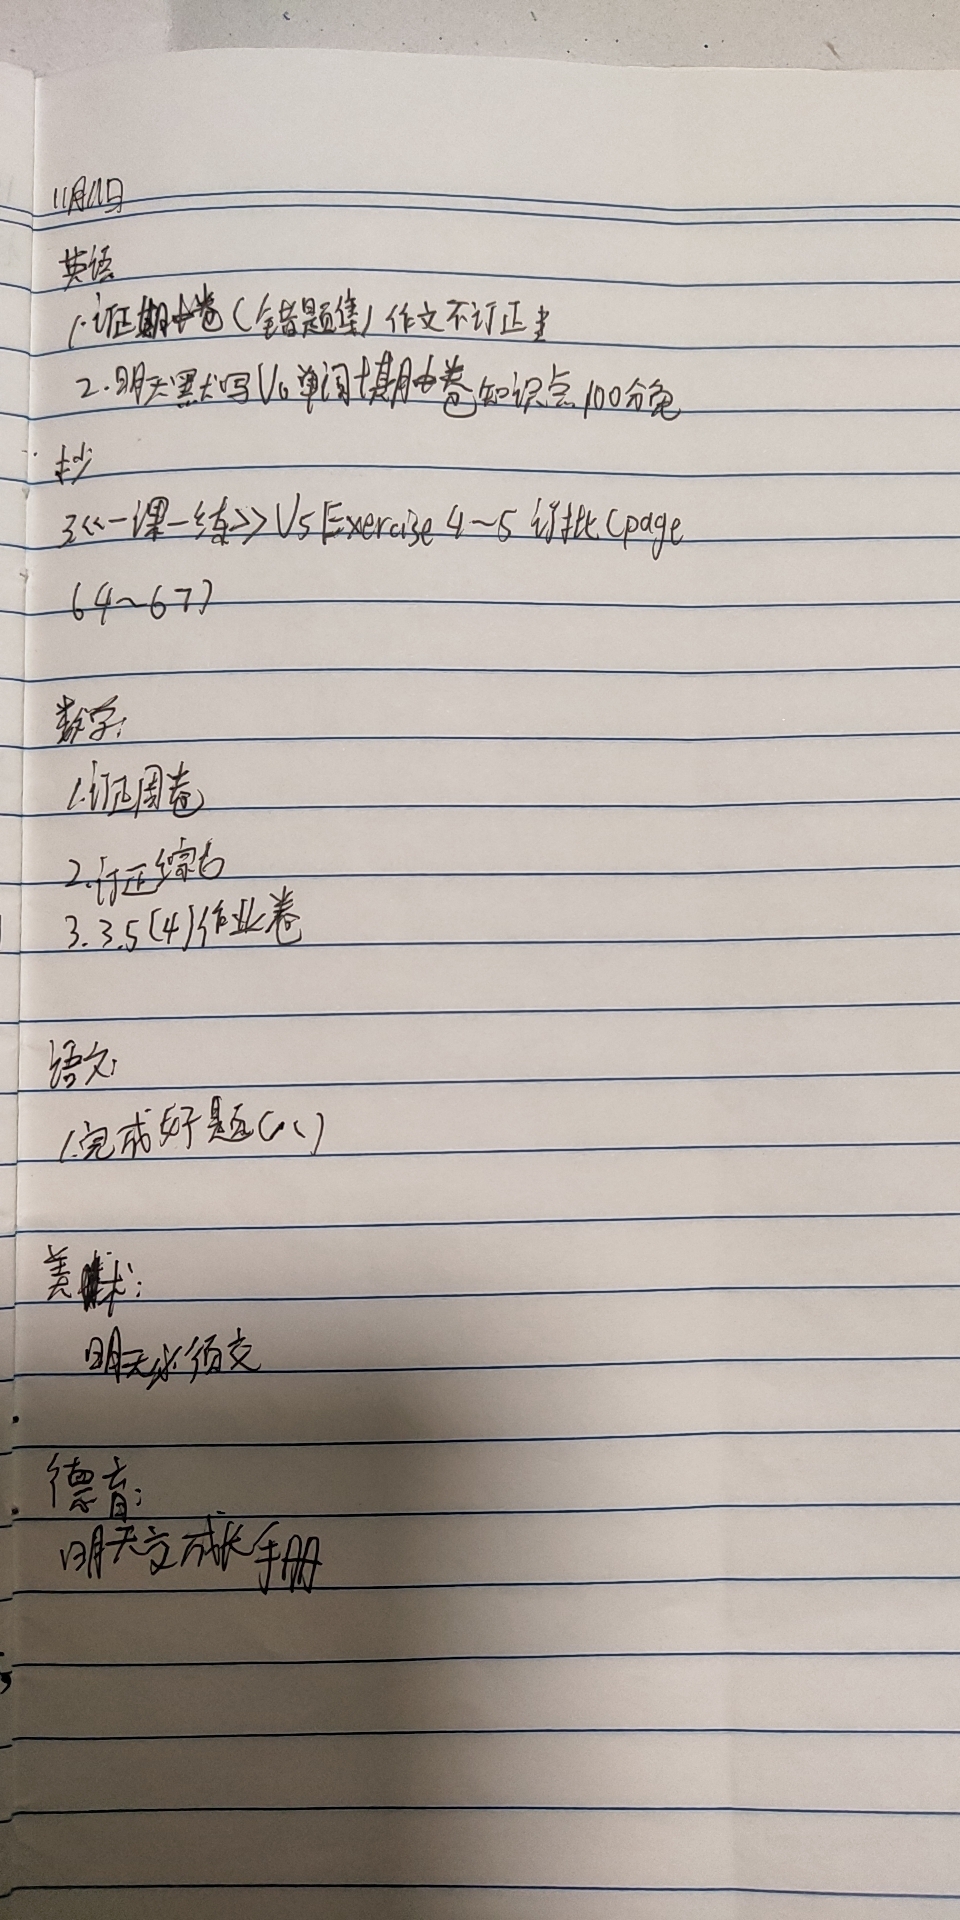 11月11日
英语
1.订正期中卷(错题集)作文不订正
2.明天默写U6单词+期中卷知识点100分免
抄
3《一课一练》U5 Exercise 4~5 订批(page
64~67)
数学:
1.订正周卷
2.订正综合
3.3.5(4)作业卷
语文
1.完成好题(八)
美术:
明天必须交
德育:
明天交成长手册